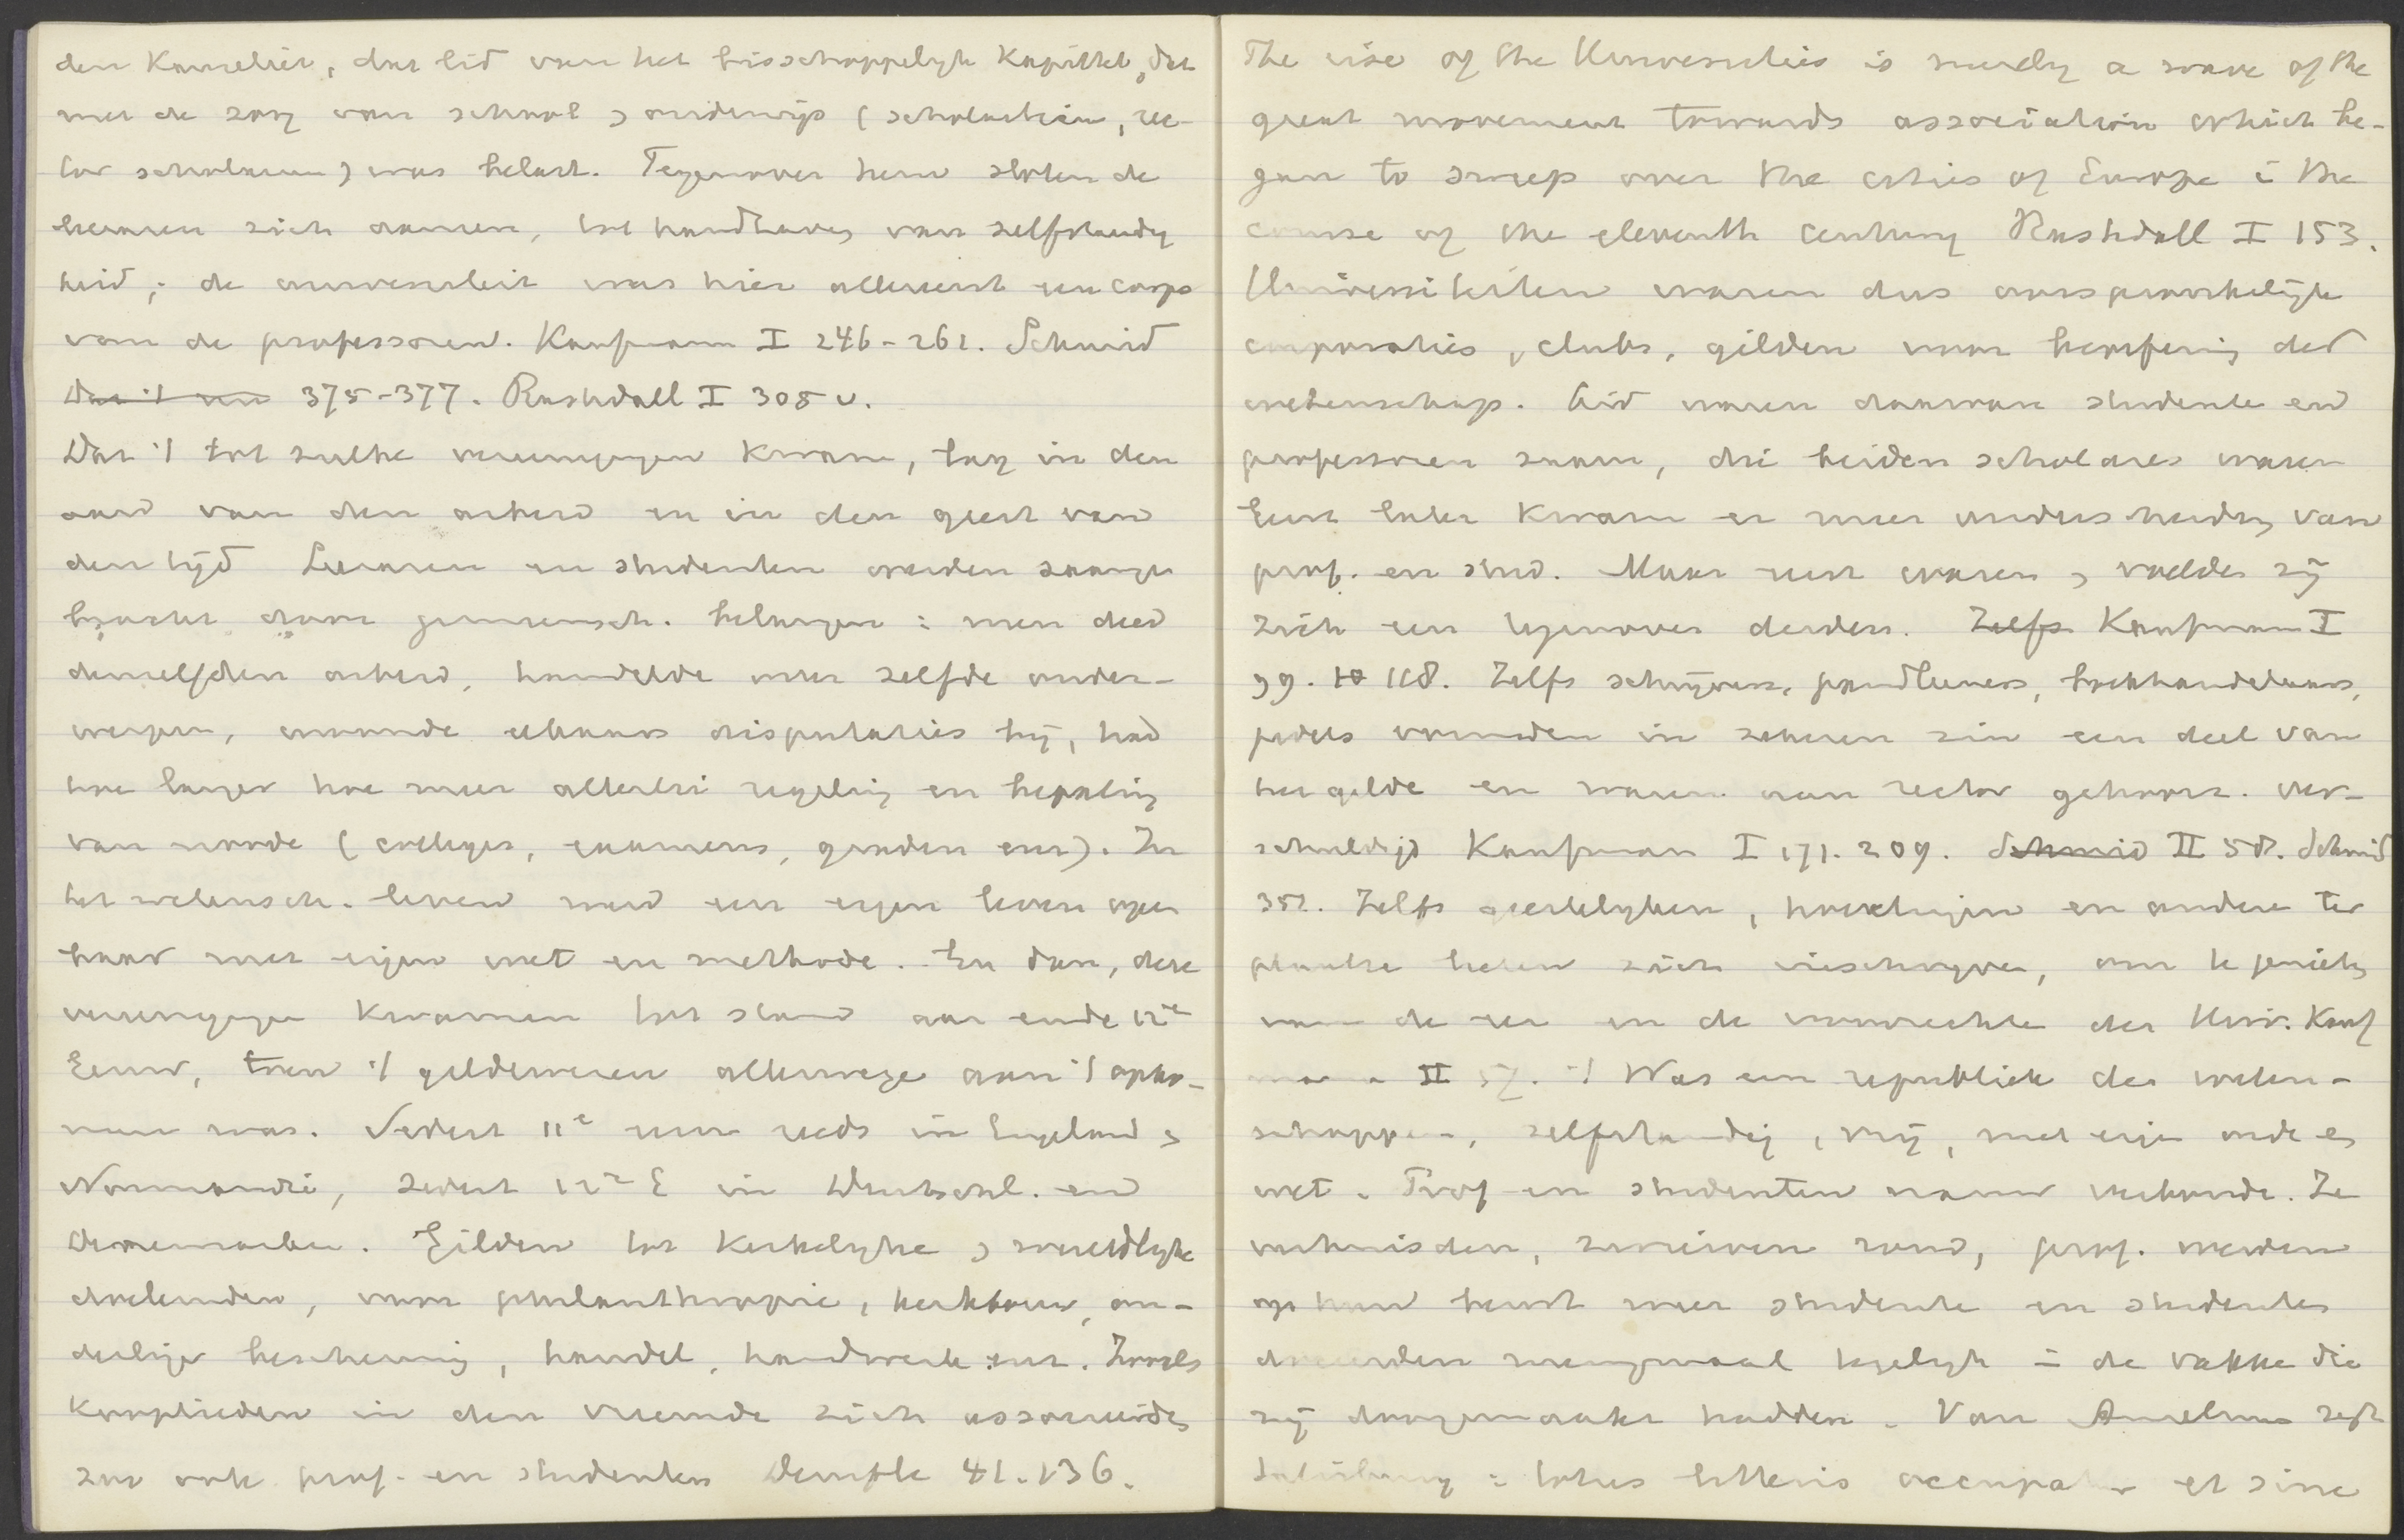 den Kanselier, dat lid van het bisschoppelijk Kapittel, dat
met de zorg van school & onderwijs (scholasticus, rec-
tor scholarum) was belast. Tegenover hem sloten de
leeraren zich aaneen, tot handhaving van zelfstandig
heid; de universiteit was hier allereerst een corps
van de professoren. Kaufmann I 246-262. Schmid
375-377. Rashdall I 305 v.
Dat 't tot zulke vereenigingen kwam, lag in den
aard van den arbeid en in den geest van
den tijd Leeraren en studenten werden saamge
bracht door gemeensch. belangen: men deed
denzelfden arbeid, handelde over zelfde onder-
werpen, woonde elkaars disputaties bij, had
hoe langer hoe meer allerlei regeling en bepaling
van noode (colleges, examens, graden enz). In
het wetensch. leven werd een eigen leven open
baar met eigen wet en methode. En dan, deze
vereenigingen kwamen tot stand aan einde 12e
Eeuw, toen 't gildewezen allerwege aan 't opko-
men was. Sedert 11e eeuw reeds in Engeland &
Normandië, sedert 12e E in Duitschl. en
Denemarken. Gilden tot Kerkelijke & wereldlijke
doeleinden, voor philanthropie, kerkbouw, on-
derlinge bescherming, handel, handwerk enz. Zooals
Kooplieden in den vreemde zich associeerden
zoo ook prof. en studenten Denifle 41. 136.
The rise of the Universities is merely a wave of the
great movement towards association which be-
gan to sweep over the cities of Europe i the
course of the eleventh century Rashdall I 153.
Universiteiten waren dus oorspronkelijk
corporaties, clubs, gilden voor beoefening der
wetenschap. Lid waren daarvan studenten en
professoren saam, die beiden scholares waren
Eerst later kwam er meer onderscheiding van
prof. en stud. Maar eerst waren & voelden zij
zich een tegenover derden. Zelfs Kaufmann I
99. 118. Zelfs schrijvers, pandleeners, boekhandelaars,
pedels vormden in zekeren zin een deel van
het gilde en waren aan rector gehoorz. ver-
schuldigd Kaufmann I 171. 209. Schmid II 58. Schmid
352. Zelfs geestelijken, en andere ter
plaatse lieten zich inschrijven, om te genieten
van de eer en de voorrechten der Univ. Kauf
mann II 57. 't Was een republiek der weten-
schappen, zelfstandig, vrij, met eigen orde en
wet. Prof en studenten nauw verbonden. Ze
verhuisden, zwierven rond, prof. werden
op hun beurt weer studenten en studenten
doceerden menigmaal tegelijk in de vakken die
zij doorgemaakt hadden. Van Anselmus zegt
: totus litteris occupatur et sine